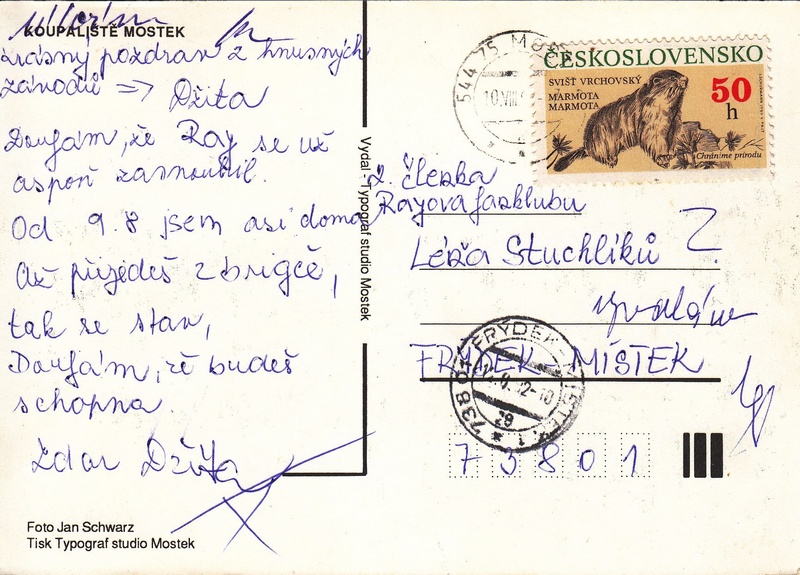 KOUPALIŠTĚ MOSTEK
krásný pozdrav z hnusných
závodů => Džita
Doufám, že Ray se už
aspoň zasnoubil.
Od 9.8 jsem asi doma
Až přijedeš z brigče,
tak se stav,
Doufám, že budeš
schopna.
Ždar Džita
Foto Jan Schwarz
Tisk Typograf studio Mostek
Vydal Typograf studio Mostek
544 75 MOS
10.VIII.
ČESKOSLOVENSKO
SVIŠŤ VRCHOVSKÝ
MARMOTA
MARMOTA
50
h
Chraňme přírodu
2. členka
Rayova fanklubu
Léňa Stuchlíků
FRÝDEK MÍSTEK
738 01 FRÝDEK-MÍSTEK 1
73801